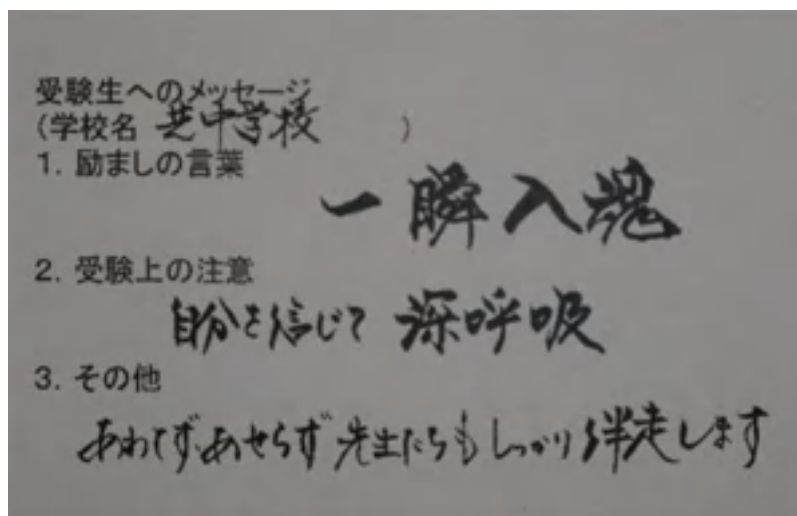 受験生へのメッセージ
(学校名 芝中学校 )
1. 励ましの言葉
一瞬入魂
2. 受験上の注意
自分を信じて 深呼吸
3. その他
あわてず、あせらず 先生たちもしっかり伴走します